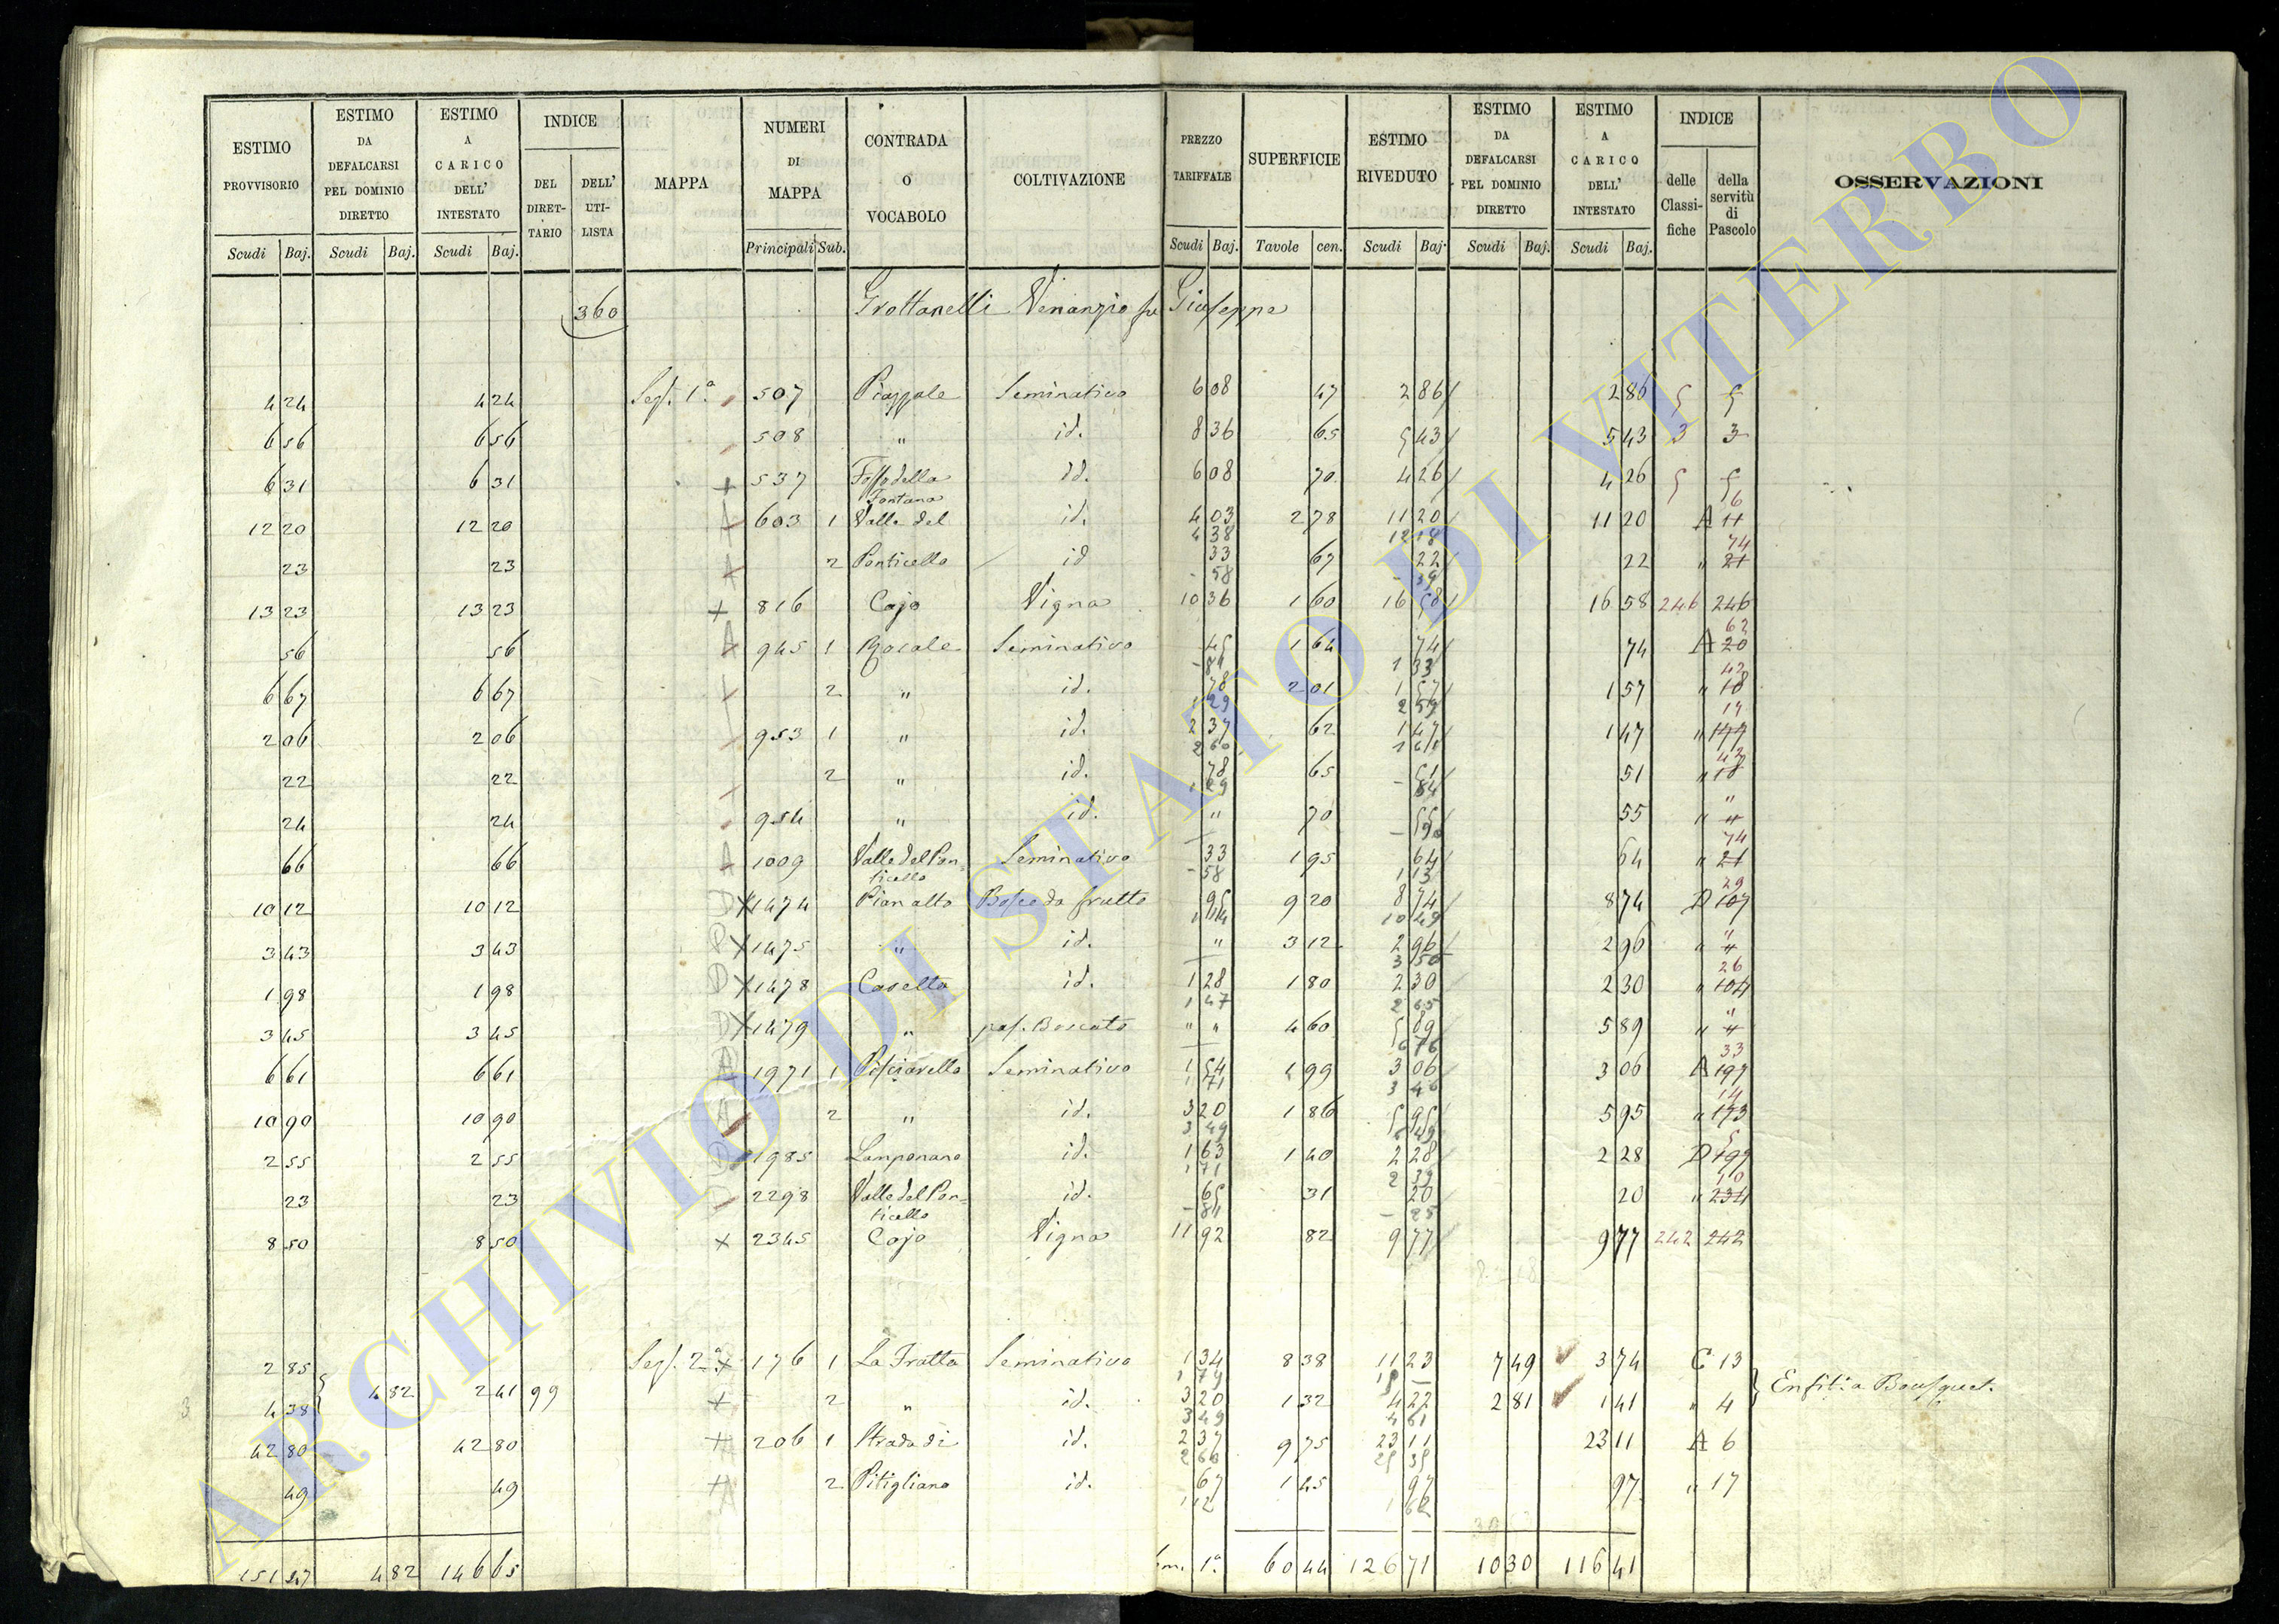 ESTIMO PROVVISORIO Scudi Baj. | ESTIMO DA DEFALCARSI PEL DOMINIO DIRETTO Scudi Baj. | ESTIMO A CARICO DELL' INTESTATO Scudi Baj. | INDICE DEL DIRET-TARIO | DELL' UTI-LISTA | MAPPA | NUMERI DI MAPPA Principali Sub. | CONTRADA O VOCABOLO | COLTIVAZIONE | PREZZO TARIFFALE Scudi Baj. | SUPERFICIE Tavole cen. | ESTIMO RIVEDUTO Scudi Baj. | ESTIMO DA DEFALCARSI PEL DOMINIO DIRETTO Scudi Baj. | ESTIMO A CARICO DELL' INTESTATO Scudi Baj. | INDICE delle Classi-fiche | della servitù di Pascolo | OSSERVAZIONI
360 Grottanelli Venanzio fu Giuseppe
4 24 4 24 Sez. 1ª 507 Piazzale Seminativo 6 08 47 2 86 2 86 5 5
6 56 6 56 508 " id. 8 36 65 5 43 5 43 3 3
6 31 6 31 + 537 Fosso della id. 6 08 70 4 26 4 26 5 5
Fontana 6
12 20 12 20 A 603 1 Valle del id. 4 03 2 78 11 20 11 20 A 11
4 38 12 18 74
23 23 A 2 Ponticello id 33 67 22 22 " 21
- 58 - 39
13 23 13 23 + 816 Cajo Vigna 10 36 1 60 16 58 16 58 246 246
62
56 56 A 945 1 Seminativo 45 1 64 74 74 A 20
1 33 42
6 67 6 67 2 " id. 78 2 01 1 57 1 57 " 18
1 29 2 59 14
2 06 2 06 953 1 " id. 2 37 62 1 47 1 47 "
2 60 1 61 42
22 22 2 " id. 78 65 51 51 " 18
1 29 - 84
24 24 954 " id. " 70 55 55 " "
- 90 74
66 66 A 1009 Valle del Pon- Seminativo 33 1 95 64 64 " 21
ticello - 58 1 13 29
10 12 10 12 D X 1474 Pian alto Bosco da frutto 95 9 20 8 74 8 74 D 107
1 14 10 49
3 43 3 43 X 1475 " id. " 3 12 2 96 2 96 " "
3 50 26
1 98 1 98 D X 1478 Casella id. 1 28 1 80 2 30 2 30 " 104
1 47 2 65
3 45 3 45 D X 1479 " pas. Boscato " " 4 60 5 89 5 89 " "
6 76 33
6 61 6 61 A 1971 1 Pisciarello Seminativo 1 54 1 99 3 06 3 06 A 197
1 71 3 40 14
10 90 10 90 A 2 " id. 3 20 1 86 5 95 5 95 " 173
3 49 6 49 5
2 55 2 55 D 1985 Lamponaro id. 1 63 1 40 2 28 2 28 D 199
1 71 2 39 10
23 23 2298 Valle del Pon- id. 65 31 20 20 " 234
ticello - 81 - 25
8 50 8 50 + 2345 Cajo Vigna 11 92 82 9 77 9 77 242 242
2 85 Sez. 2ª + 176 1 La Fratta Seminativo 1 34 8 38 11 23 7 49 3 74 C 13
1 79 15 —
4 82 2 41 99 Enfit.a Bousquet.
4 38 + 2 " id. 3 20 1 32 4 22 2 81 1 41 " 4
3 49 4 61
42 80 42 80 + 206 1 Strada di id. 2 37 9 75 23 11 23 11 A 6
2 60 25 35
49 49 + A 2 Pitigliano id. 67 1 45 97 97 " 17
1 12 1 62
151 47 4 82 146 65 1ª. 60 44 126 71 10 30 116 41
ARCHIVIO DI STATO DI VITERBO